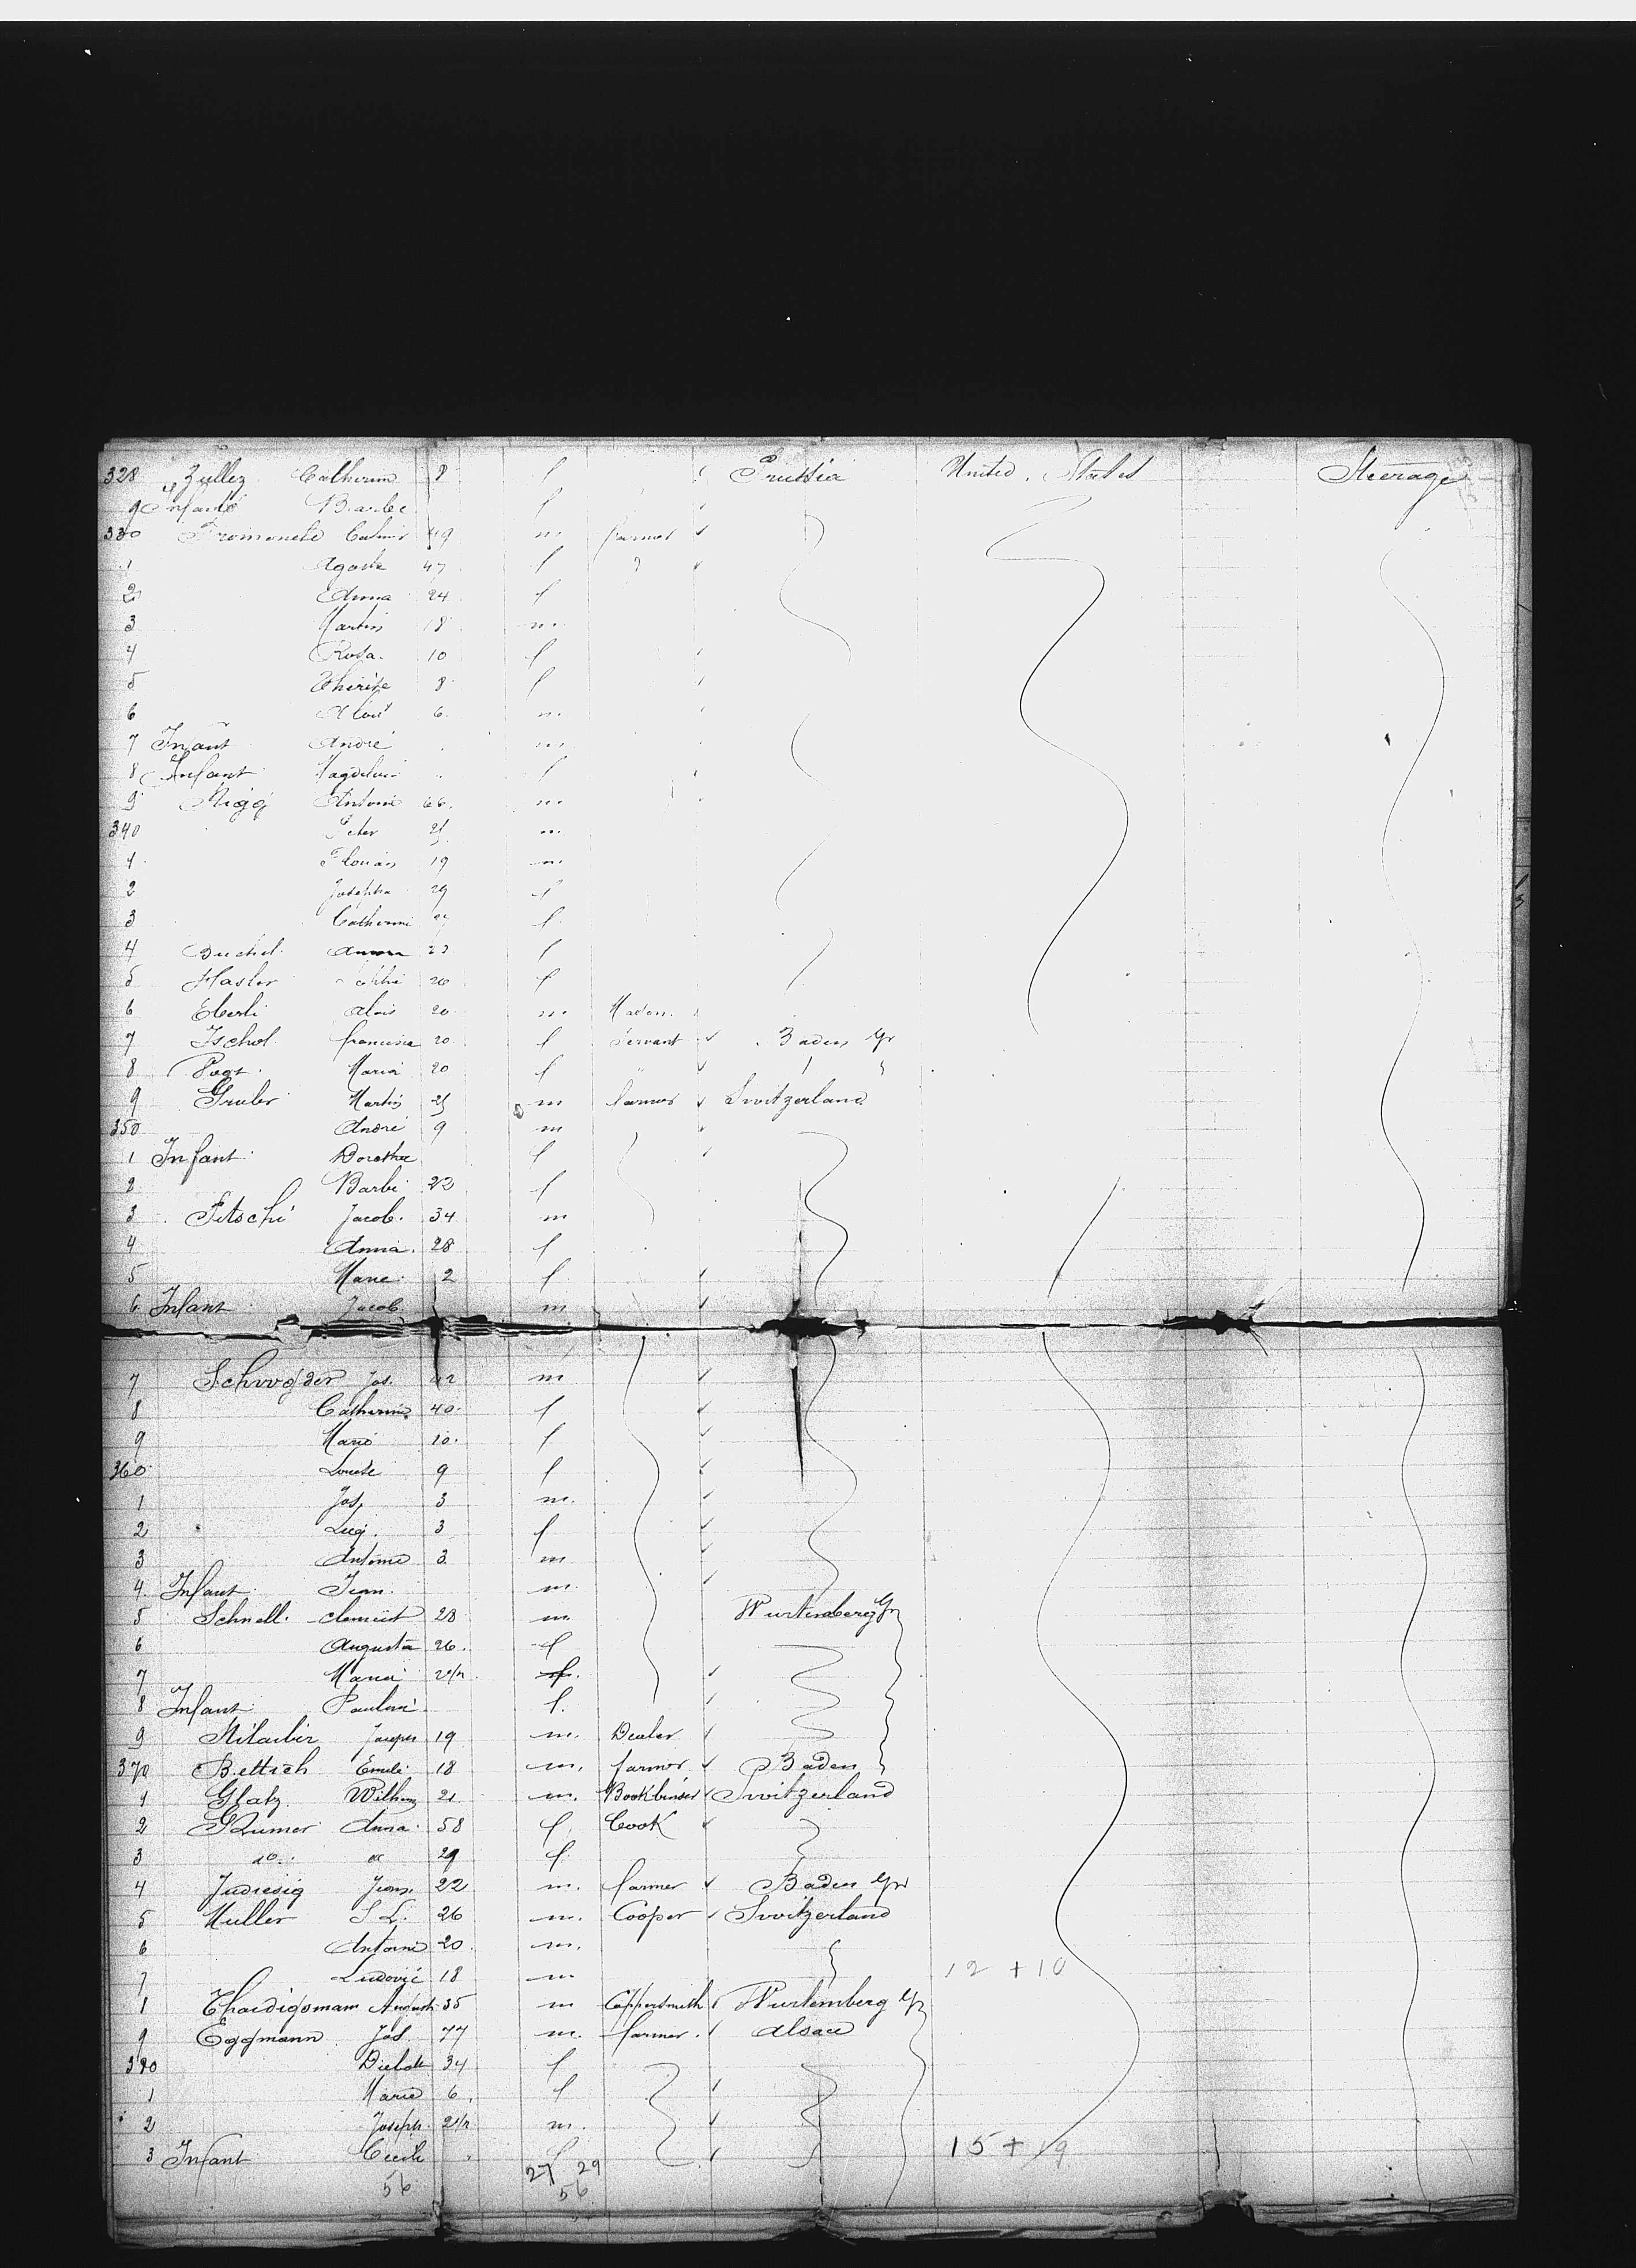 328 Zullig Catherine 8 f Prussia United States Steerage
9 Infant Barbe f
330 Fromonete Casimir 49 m farmer
1 Agathe 47 f
2 Anna 24 f
3 Martin 18 m
4 Rosa 10 f
5 Thérèse 8 f
6 Aloïs 6 m
7 Infant André m
8 Infant Magdeleine f
9 Nigg Antoine 66 m
340 Peter 21 m
1 Florian 19 m
2 Josepha 29 f
3 Catherine f
4 Buchel Anna 23 f
5 Hasler 20 f
6 Eberli Alois 20 m Mason
7 Tschol francisca 20 f Servant Baden Gr
8 Vogt Maria 20 f
9 Gruber Martin 25 m farmer Switzerland
350 André 9 m
1 Infant Dorothee f
2 Barbe 22 f
3 Fitschi Jacob 34 m
4 Anna 28 f
5 Marie 2 f
6 Infant Jacob m
7 Schwogder Jos. 42 m
8 Catherine 40 f
9 Marie 10 f
360 Louise 9 f
1 Jos. 3 m.
2 3 f
3 Antoine 3 m
4 Infant Jean m.
5 Schnell Clement 28 m Wurtemberg Gr
6 Augusta 26 f
7 Maria f.
8 Infant Pauline f.
9 Joseph 19 m. Dealer
370 Bettich Emile 18 m. farmer Baden
1 Glatz Wilhem 21 m. Bookbinder Switzerland
2 Anna 58 f. Cook
3 do. do 29 f.
4 Judiesig Jean 22 m. farmer Baden Gr
5 Muller S L. 26 m. Cooper Switzerland
6 Antoine 20 m.
7 Ludovic 18 m 12 + 10
1 August 35 m Coppersmith Wurtemberg Gr
9 Eggmann Jos. 77 m. farmer Alsace
380 34 f
1 Marie 6 f
2 Joseph 2 1/2 m.
3 Infant Cecile f 15 + 19
27 29
56 56